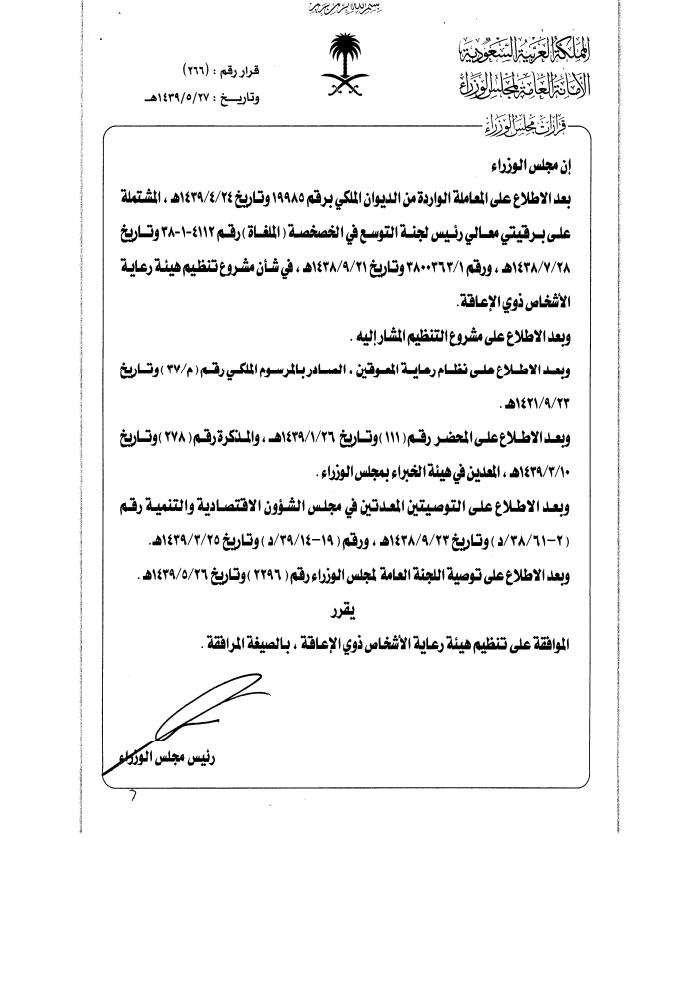 بسم الله الرحمن الرحيم
المملكة العربية السعودية
الأمانة العامة لمجلس الوزراء
قرار رقم : (٢٦٦)
وتاريخ : ١٤٣٩/٥/٢٧هـ
قرارات مجلس الوزراء
إن مجلس الوزراء
بعد الاطلاع على المعاملة الواردة من الديوان الملكي برقم ١٩٩٨٥ وتاريخ ١٤٣٩/٤/٢٤هـ ، المشتملة
على برقيتي معالي رئيس لجنة التوسع في الخصخصة (الملغاة) رقم ٤١١٢-١-٣٨ وتاريخ
١٤٣٨/٧/٢٨هـ ، ورقم ٣٨٠٠٣٦٣/١ وتاريخ ١٤٣٨/٩/٢١هـ ، في شأن مشروع تنظيم هيئة رعاية
الأشخاص ذوي الإعاقة.
وبعد الاطلاع على مشروع التنظيم المشار إليه .
وبعد الاطلاع على نظام رعاية المعوقين ، الصادر بالمرسوم الملكي رقم (م/٣٧) وتاريخ
١٤٢١/٩/٢٣هـ .
وبعد الاطلاع على المحضر رقم (١١١) وتاريخ ١٤٣٩/١/٢٦هـ ، والمذكرة رقم (٢٧٨) وتاريخ
١٤٣٩/٣/١٠هـ ، المعدين في هيئة الخبراء بمجلس الوزراء .
وبعد الاطلاع على التوصيتين المعدتين في مجلس الشؤون الاقتصادية والتنمية رقم
(٢-٣٨/٦١/د) وتاريخ ١٤٣٨/٩/٢٣هـ ، ورقم (١٩-٣٩/١٤/د) وتاريخ ١٤٣٩/٣/٢٥هـ.
وبعد الاطلاع على توصية اللجنة العامة لمجلس الوزراء رقم (٢٢٩٦) وتاريخ ١٤٣٩/٥/٢٦هـ .
يقرر
الموافقة على تنظيم هيئة رعاية الأشخاص ذوي الإعاقة ، بالصيغة المرافقة .
رئيس مجلس الوزراء